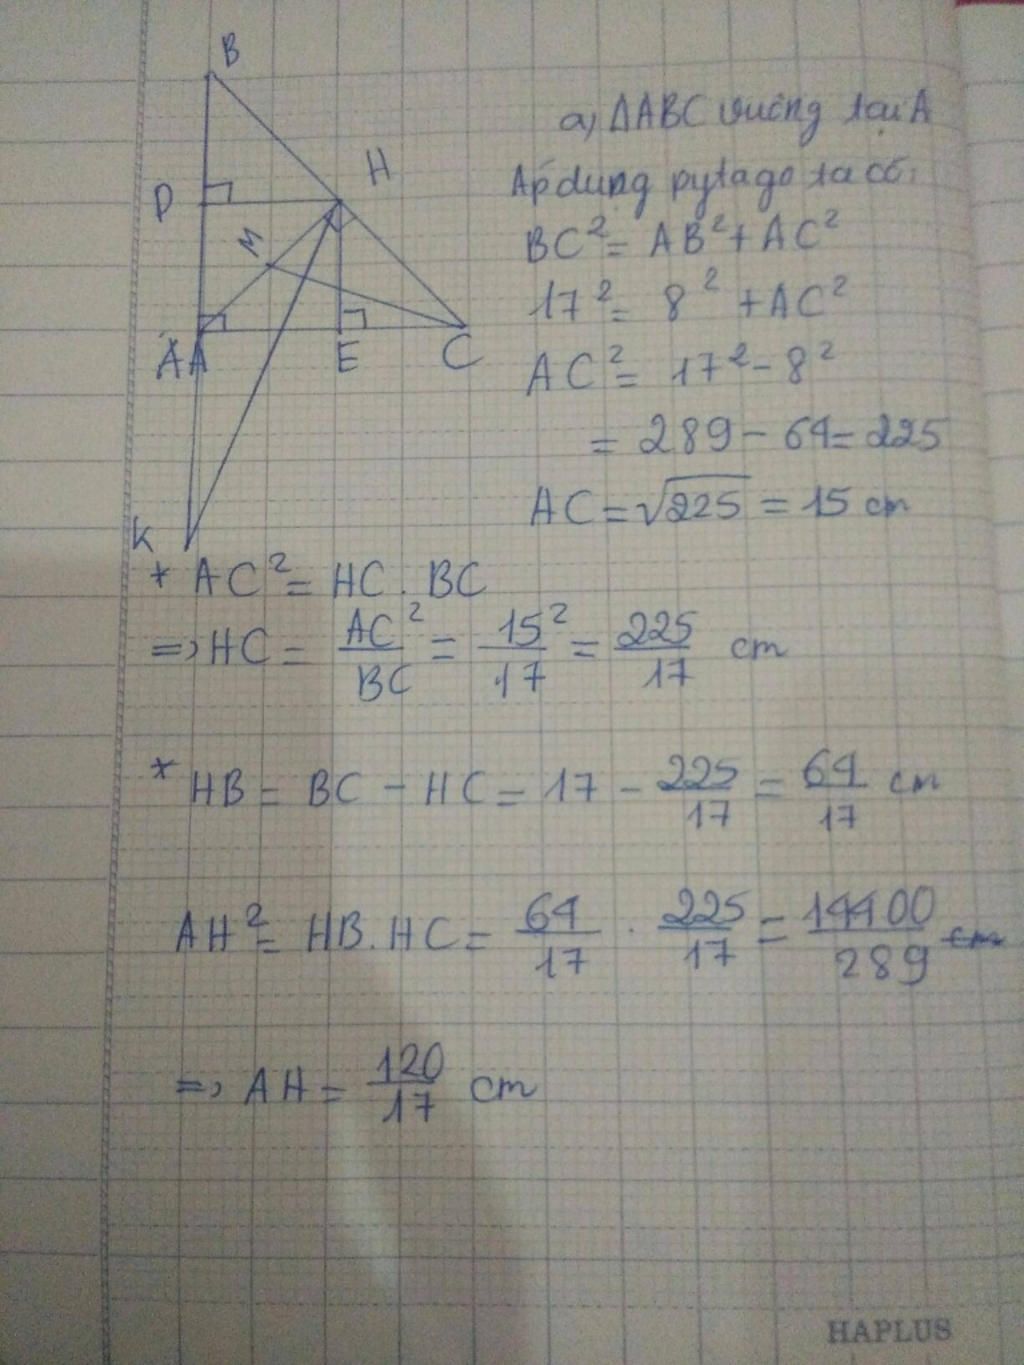 B
a, ΔABC vuông tại A
H
Áp dụng pytago ta có:
D
BC² = AB² + AC²
M
17² = 8² + AC²
A A E C
AC² = 17² - 8²
= 289 - 64 = 225
AC = √225 = 15 cm
K
* AC² = HC . BC
=> HC = AC²/BC = 15²/17 = 225/17 cm
* HB = BC - HC = 17 - 225/17 = 64/17 cm
AH² = HB.HC = 64/17 . 225/17 = 14400/289 cm
=> AH = 120/17 cm
HAPLUS